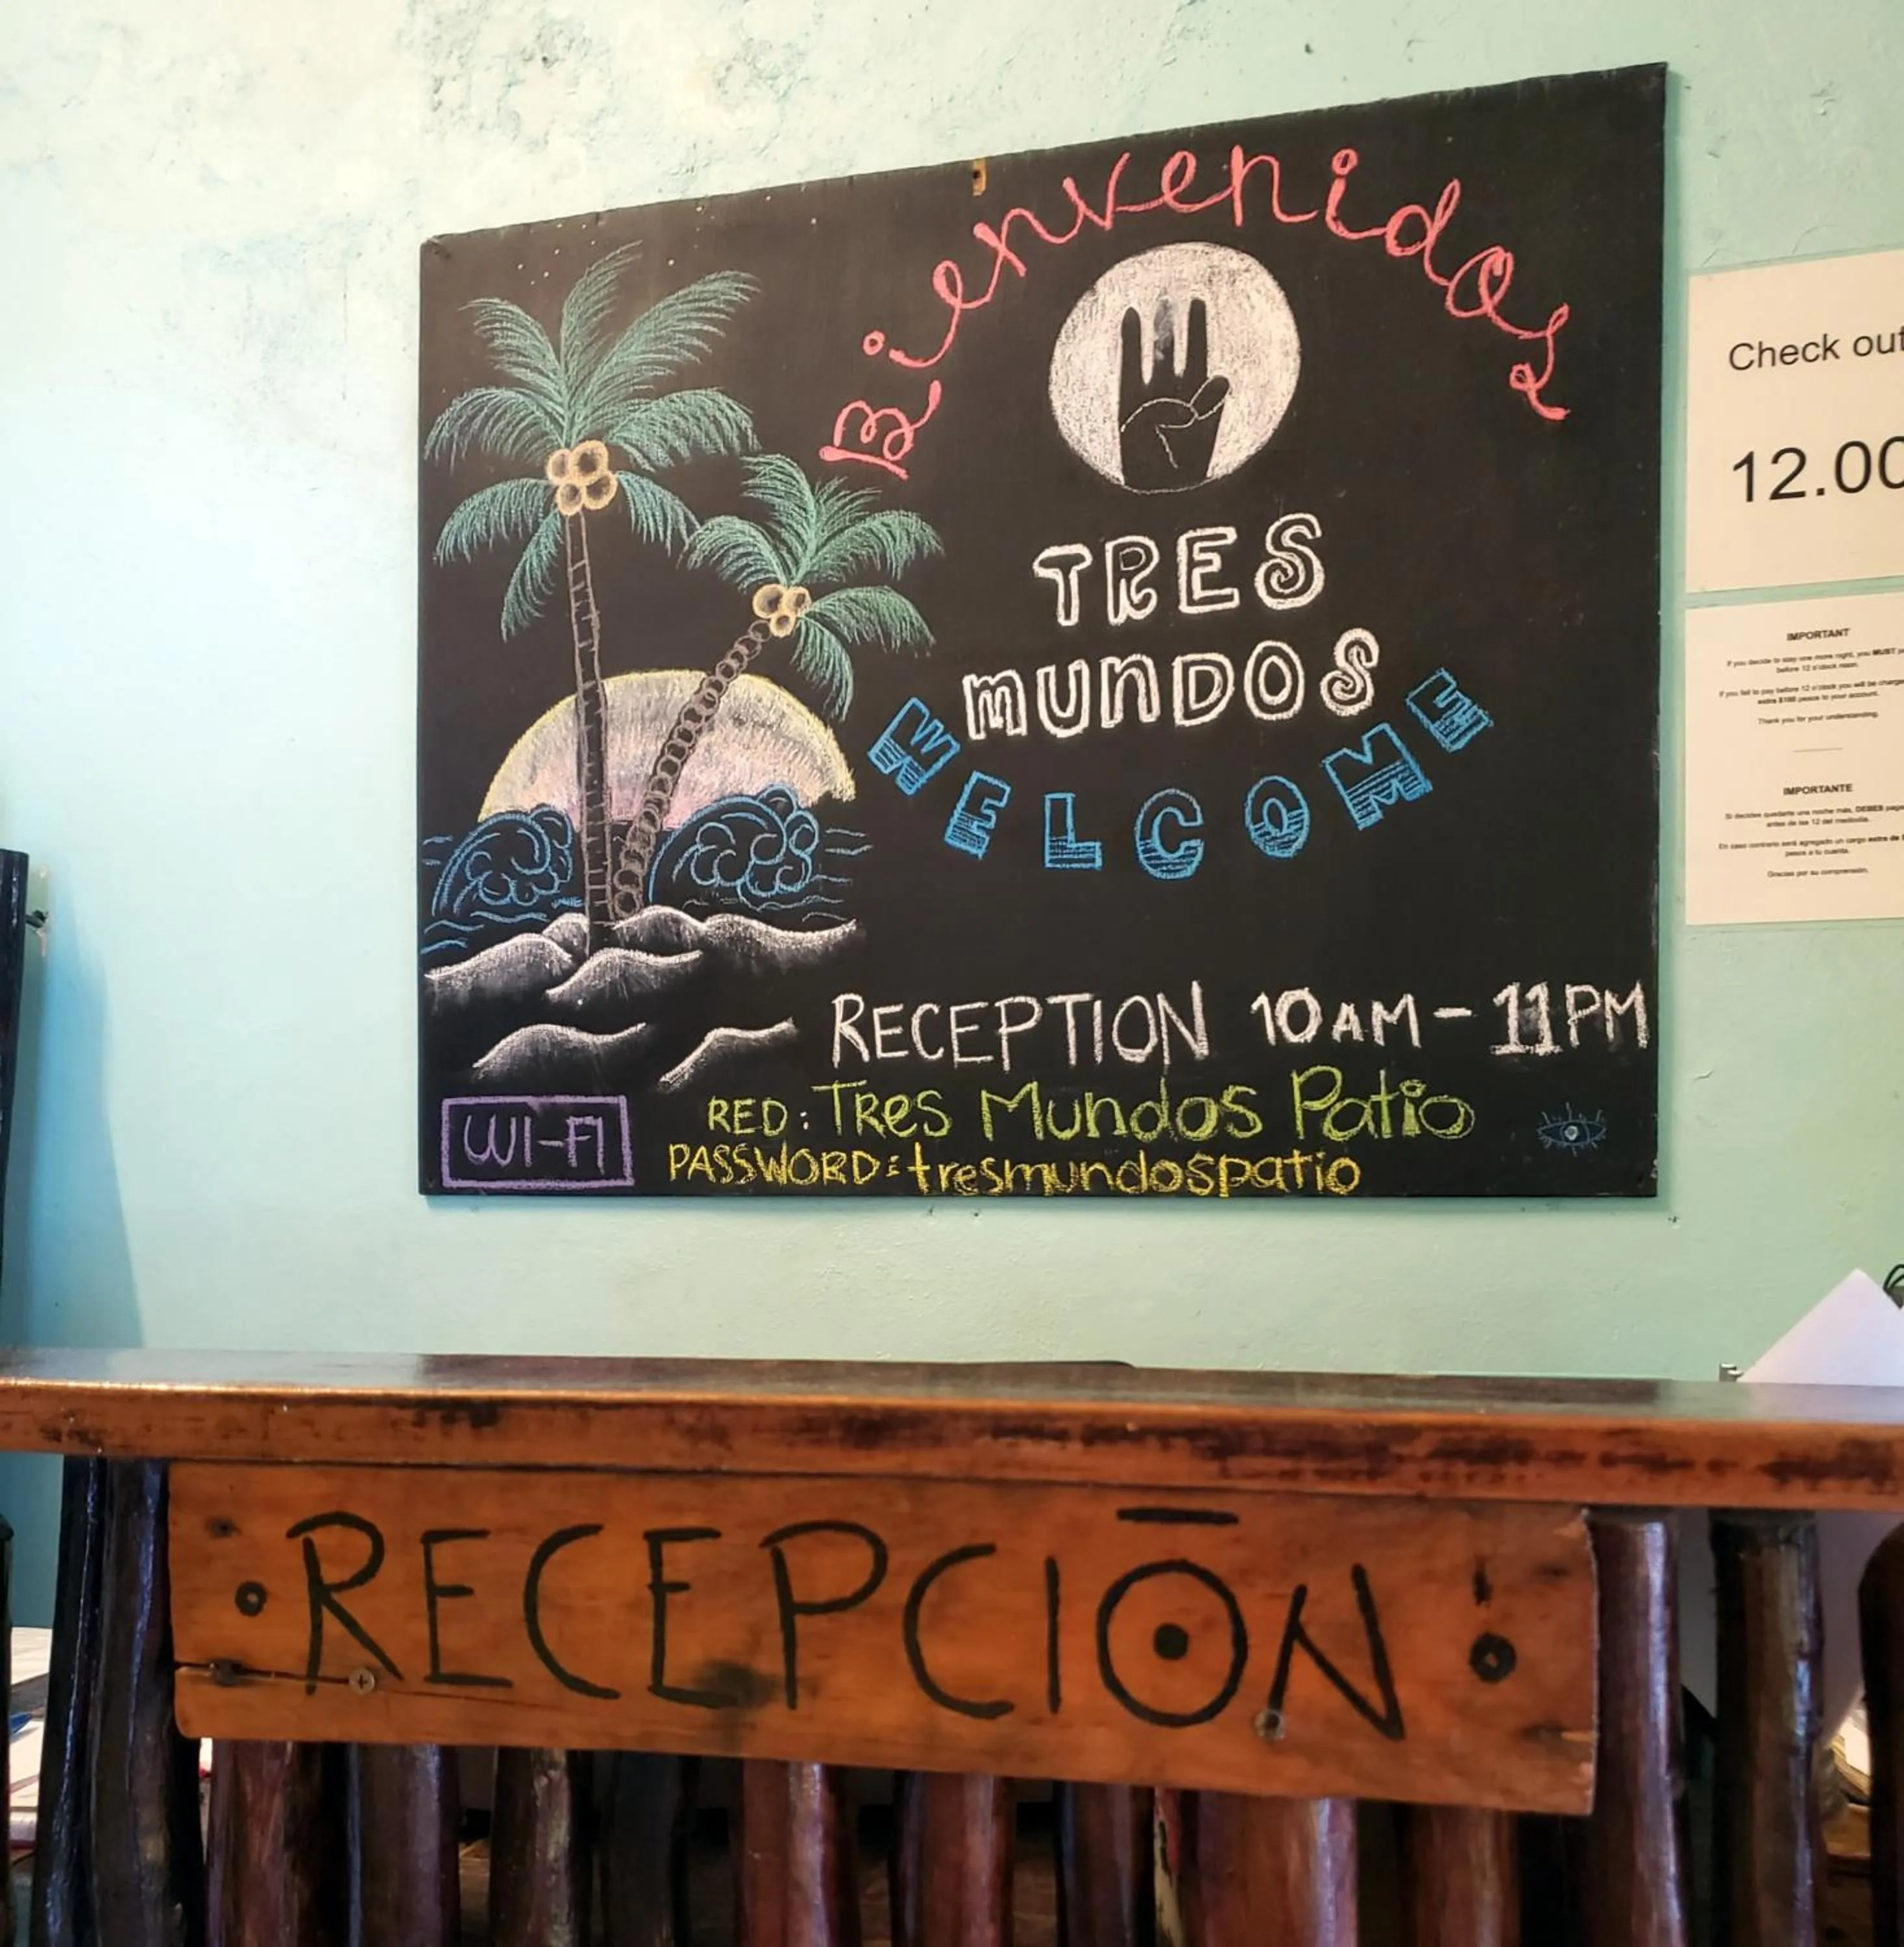 Bienvenidos
TRES
MUNDOS
WELCOME
RECEPTION 10AM - 11PM
WI-FI
RED: TRes Mundos Patio
PASSWORD: tresmundospatio
Check out
12.00
IMPORTANT
If you decide to stay one more night, you MUST
before 12 o'clock noon.
If you fail to pay before 12 o'clock you will be
extra $100 pesos to your account.
Thank you for your understanding.
IMPORTANTE
Si decides quedarte una noche más, DEBES
antes de las 12 del mediodía.
En caso contrario será agregado un cargo extra de
pesos a tu cuenta.
Gracias por su comprensión.
RECEPCIŌN